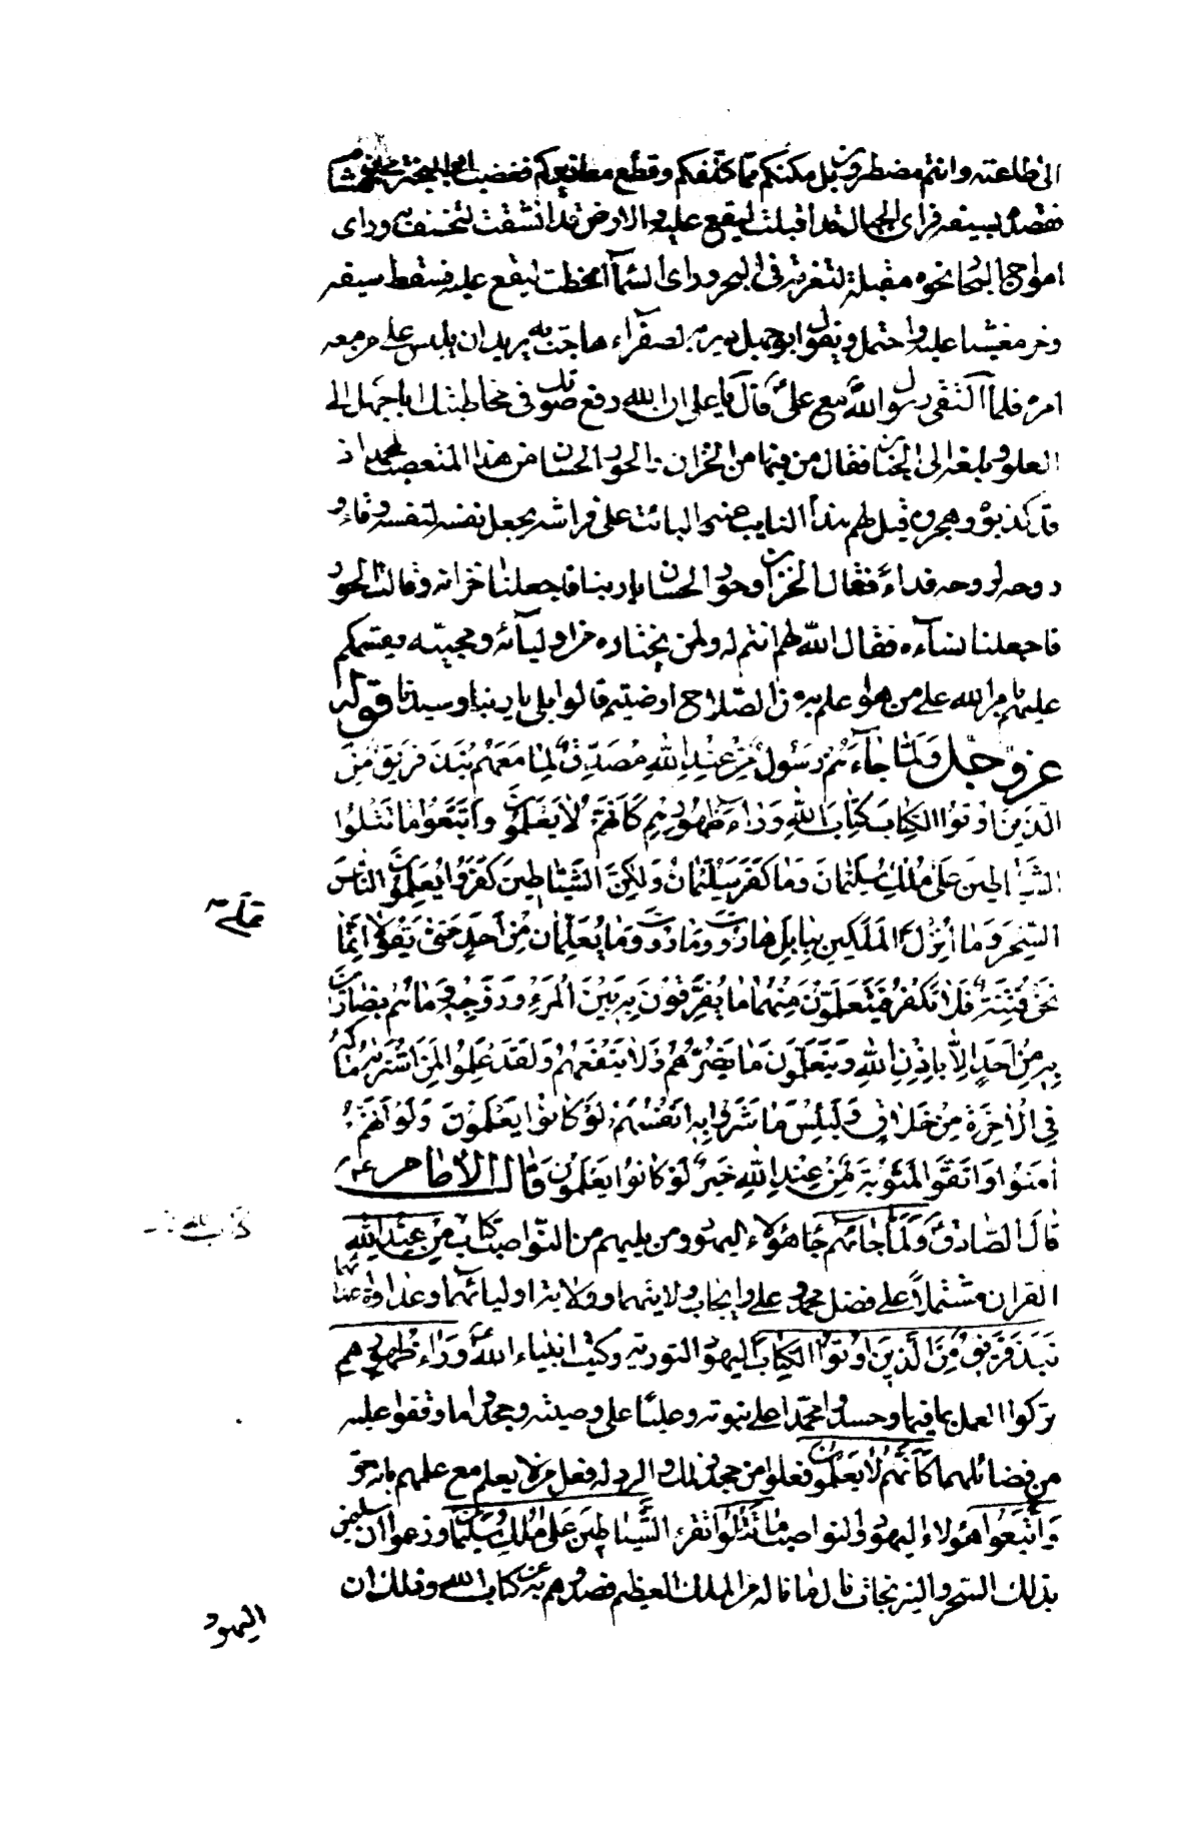 الى طاعته وانتم مضطرون بل مكنكم مما كلفكم وقطع معاذيركم فغضب ابو البختري بن هشام
فقصده بسيفه فرأى الجبال قد اقبلت ليقع عليه والارض قد انشقت لتخسف به وراى
امواج البحار نحوه مقبلة لتغرقه في البحر وراى السمآ انحطت ليقع عليه فسقط سيفه
وخر مغشيا عليه واحتمل ويقول ابوجهل ديربه لصفرآء هاجت به يريد ان يلبس على من معه
امره فلمآ التقى رسول الله مع علي قال يا علي ان الله رفع صوتك في مخاطبتك اباجهل الى
العلو وبلغه الى الجنان فقال من فيها من الخزان والحور الحسان من هذا المتعصب لمحمد اذ
قد كذبوه وهجروه قيل لهم هذا النايب عنه والبائت على فراشه يجعل نفسه لنفسه وقاء و
روحه لروحه فداء فقال الخزان وحور الحسان يا ربنا فاجعلنا خزانه وقالت الحور
فاجعلنا نساءه فقال الله لهم انتم له ولمن يختاره من اوليآئه ومحبيه يقسمكم
عليهم بامر الله على من هو اعلم به من الصلاح ارضيتم قالوا بلى يا ربنا وسيدنا قوله
عز وجل وَلَمّا جآءَهُم رَسُولٌ مِن عِندِ اللهِ مُصَدِّقٌ لِما مَعَهُم نَبَذَ فَرِيقٌ مِنَ
الّذينَ اُوتوا الكِتابَ كِتابَ اللهِ وَرآءَ ظُهُورِهِم كَاَنَّهُم لا يَعلَمُونَ واتَّبَعُوا ما تَتْلُوا
الشَّياطينُ عَلى مُلكِ سُلَيمانَ وَما كَفَرَ سُلَيمانُ وَلكِنَّ الشَّياطينَ كَفَرُوا يُعَلِّمُونَ النّاسَ
السِّحرَ وَما اُنزِلَ عَلَى المَلَكَينِ بِبابِلَ هارُوتَ ومارُوتَ وَما يُعَلِّمانِ مِن اَحَدٍ حَتّى يَقُولا اِنَّما
نَحنُ فِتنَةٌ فَلا تَكفُر فَيَتَعَلَّمُونَ مِنهُما ما يُفَرِّقُونَ بِه بَينَ المَرءِ وَزَوجِه وَما هُم بِضارّينَ
بِه مِن اَحَدٍ اِلاّ بِاِذنِ اللهِ وَيَتَعَلَّمُونَ ما يَضُرُّهُم وَلا يَنفَعُهُم وَلَقَد عَلِمُوا لَمَنِ اشتَرَيهُ ما لَهُ
فِي الاخِرَةِ مِن خَلاقٍ وَلَبِئسَ ما شَرَوا بِه اَنفُسَهُم لَو كانُوا يَعلَمُونَ وَلَو اَنَّهُم
امَنُوا وَاتَّقَوا لَمَثُوبَةٌ مِن عِندِ اللهِ خَيرٌ لَو كانُوا يَعلَمُونَ قال الامام ع
قال الصّادق وَلَمّا جاءَهُم جاء هؤلاء اليهود ومن يليهم من النّواصب كِتابٌ مِن عِندِ اللهِ
القران مشتملاً على فضل محمد وعلي وايجاب ولايتهما وولاية اوليائهما وعداوة اعدائهما
نَبَذَ فَريقٌ مِنَ الَّذينَ اُوتُوا الكِتابَ اليهود التورية وكتب انبياء اللهِ وَرآءَ ظُهُورِهِم
تركوا العمل بما فيها وحسدوا محمّدا على نبوته وعليّا على وصيته وجحدوا ما وقفوا عليه
من فضائلهما كَاَنَّهُم لا يَعلَمُونَ فعلوا من جحد ذلك والرد له فعل من لا يعلم مع علمهم بانه حق
وَاتَّبَعُوا هؤلاء اليهود والنواصب ما تَتلُوا تقرء الشَّياطينُ عَلى مُلكِ سُلَيمانَ وزعموا ان سليمن
بذلك السّحر والنيرنجات نال ما ناله من الملك العظيم فصدّوهم به عن كتاب الله وذلك ان
اليهود